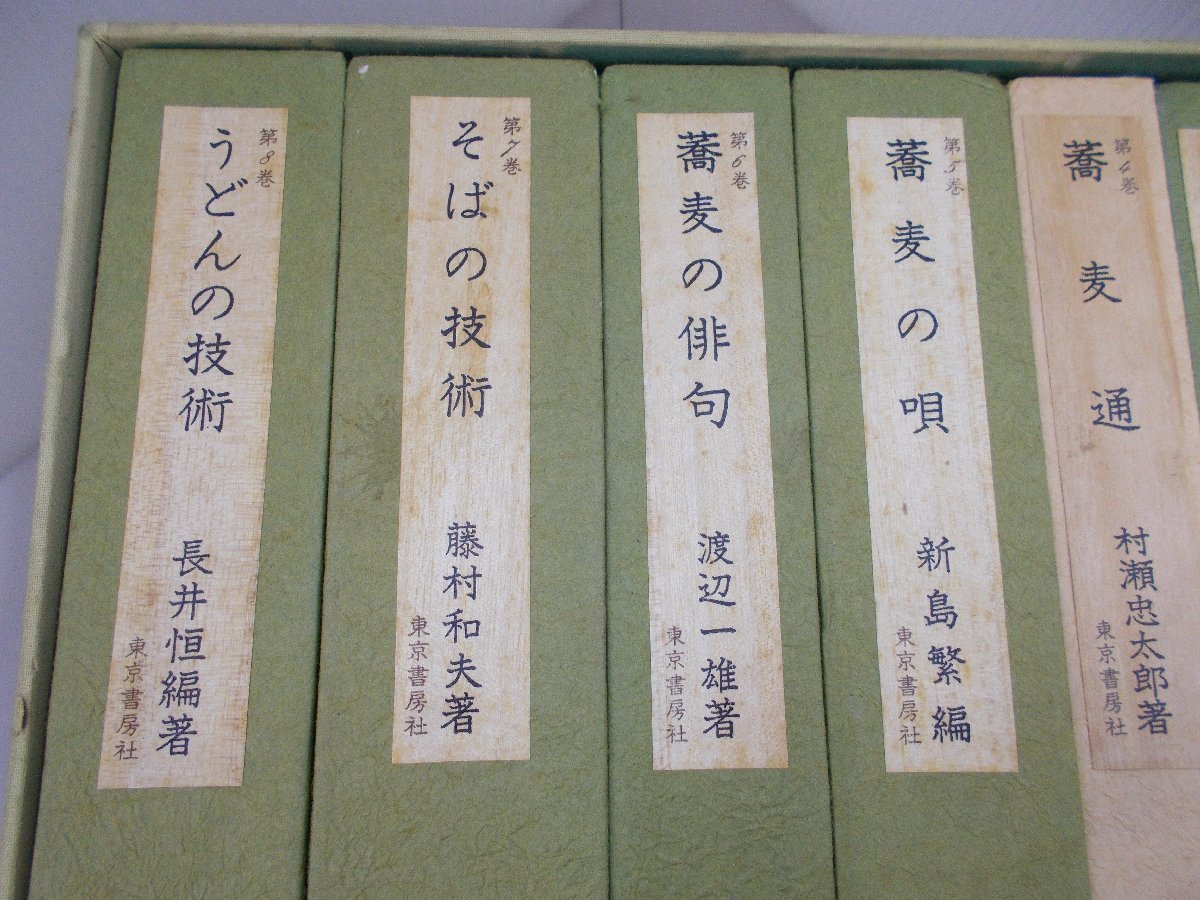 第8巻
うどんの技術
長井恒編著
東京書房社
第7巻
そばの技術
藤村和夫著
東京書房社
第6巻
蕎麦の俳句
渡辺一雄著
東京書房社
第5巻
蕎麦の唄
新島繁編
東京書房社
第4巻
蕎麦通
村瀬忠太郎著
東京書房社